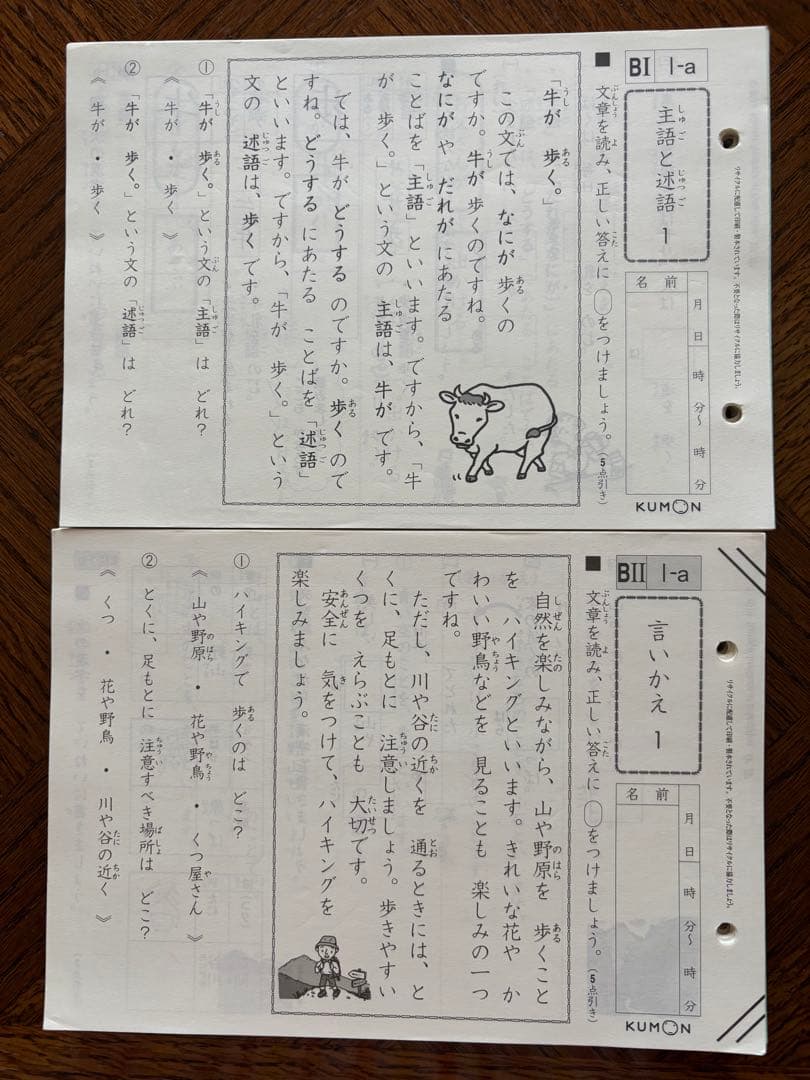 BI 1-a
主語と述語 1
名前
月 日
時 分〜 時 分
KUMON
リサイクルに配慮して印刷・製本されています。不要となった際はリサイクルに協力しましょう。
■ 文章を読み、正しい答えに ○をつけましょう。(5点引き)
「牛が 歩く。」
この文では、なにが 歩くの
ですか。牛が 歩くのですね。
なにが や だれが にあたる
ことばを「主語」といいます。ですから、「牛
が 歩く。」という文の 主語は、牛が です。
では、牛が どうする のですか。歩く ので
すね。どうする にあたる ことばを「述語」
といいます。ですから、「牛が 歩く。」という
文の 述語は、歩く です。
① 「牛が 歩く。」という文の 「主語」は どれ?
《 牛が ・ 歩く 》
② 「牛が 歩く。」という文の 「述語」は どれ?
《 牛が ・ 歩く 》
BII 1-a
言いかえ 1
名前
月 日
時 分〜 時 分
KUMON
リサイクルに配慮して印刷・製本されています。不要となった際はリサイクルに協力しましょう。
■ 文章を読み、正しい答えに ○をつけましょう。(5点引き)
自然を楽しみながら、山や野原を 歩くこと
を ハイキングといいます。きれいな花や か
わいい野鳥などを 見ることも 楽しみの一つ
ですね。
ただし、川や谷の近くを 通るときには、と
くに、足もとに 注意しましょう。歩きやすい
くつを えらぶことも 大切です。
安全に 気をつけて、ハイキングを
楽しみましょう。
① ハイキングで 歩くのは どこ?
《 山や野原 ・ 花や野鳥 ・ くつ屋さん 》
② とくに、足もとに 注意すべき場所は どこ?
《 くつ ・ 花や野鳥 ・ 川や谷の近く 》